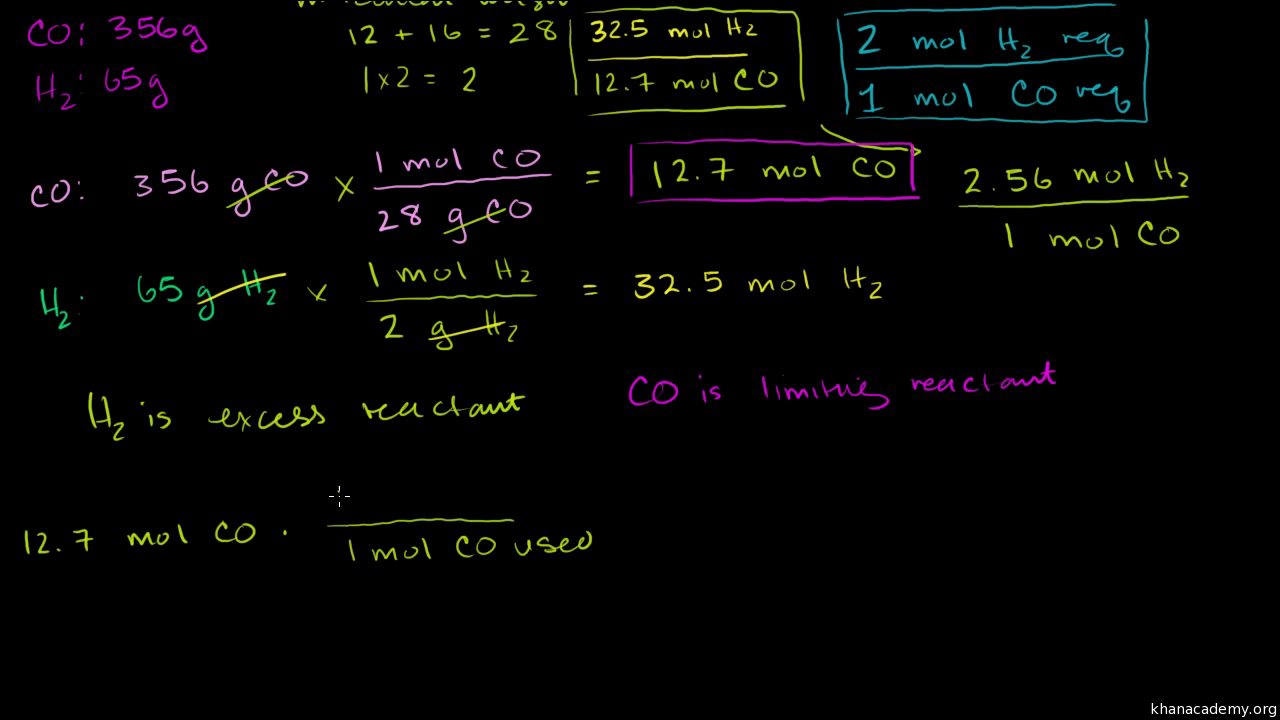 CO: 356g
12 + 16 = 28
32.5 mol H₂
12.7 mol CO
2 mol H₂ req
1 mol CO req
H₂: 65g
1×2 = 2
CO: 356 g CO × 1 mol CO
28 g CO
= 12.7 mol CO
2.56 mol H₂
1 mol CO
H₂: 65 g H₂ × 1 mol H₂
2 g H₂
= 32.5 mol H₂
H₂ is excess reactant
CO is limiting reactant
12.7 mol CO ·
1 mol CO used
khanacademy.org